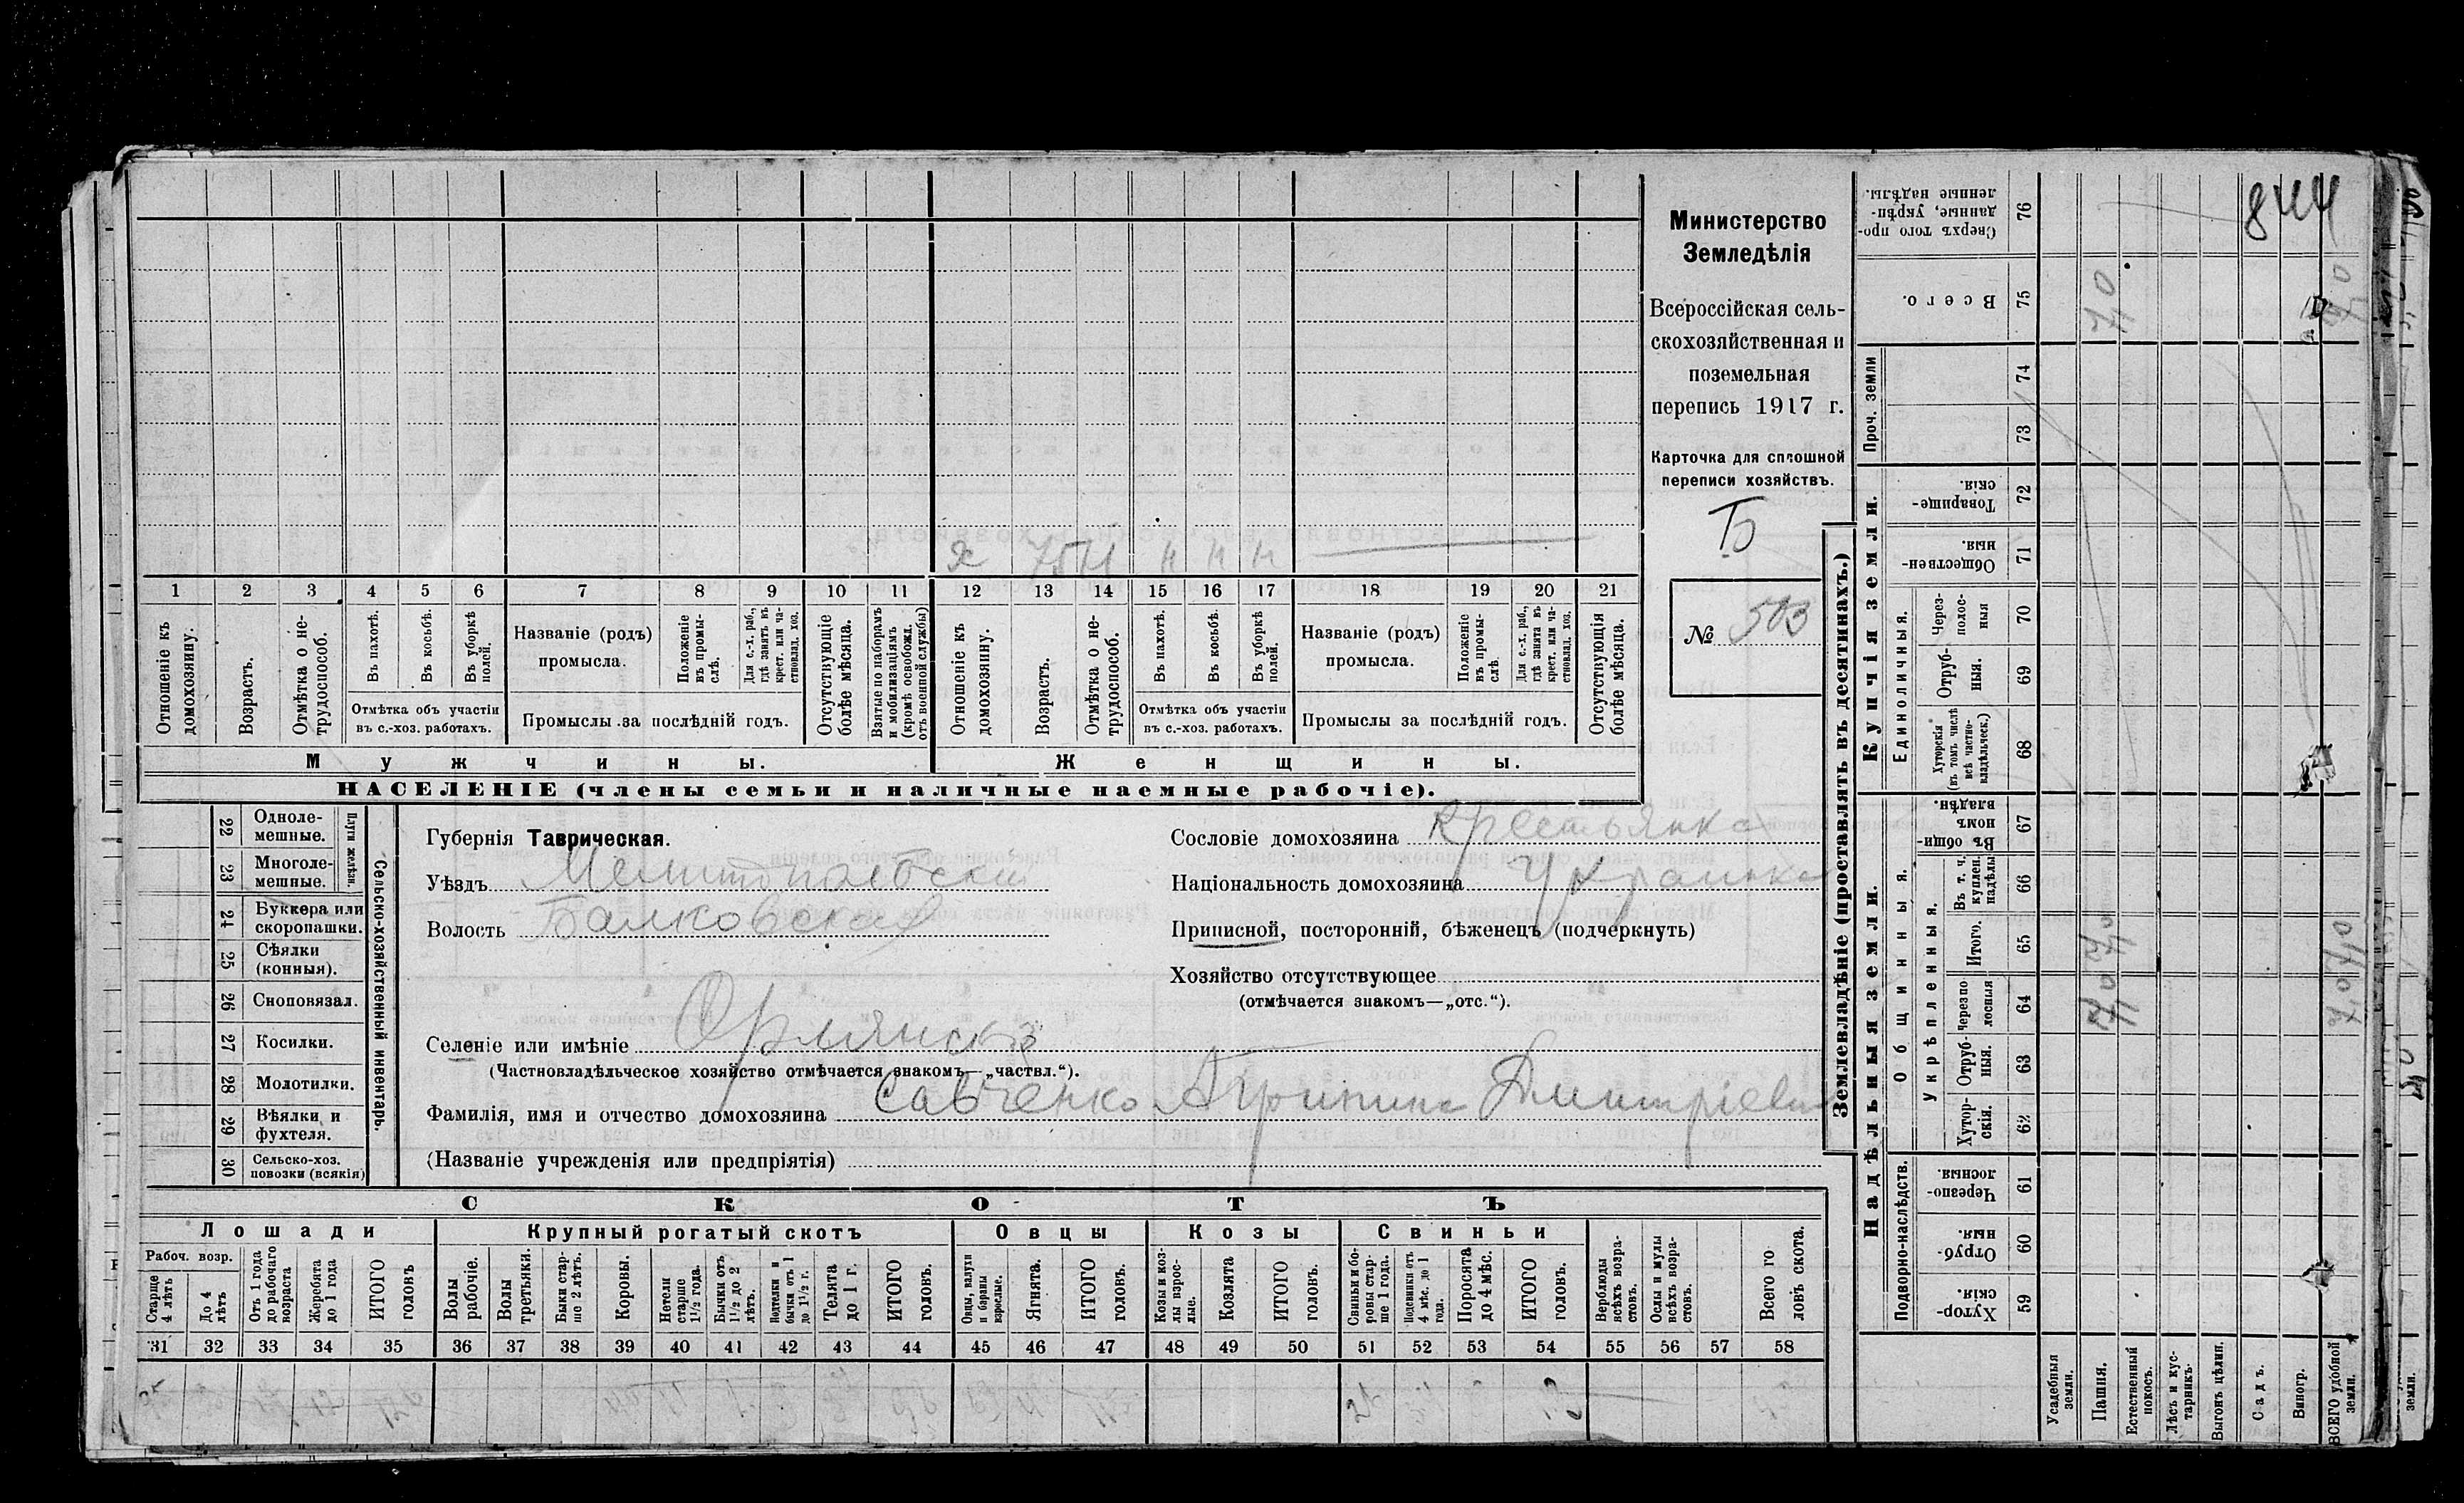 844
Министерство
Земледѣлія
Всероссійская сель-
скохозяйственная и
поземельная
перепись 1917 г.
Карточка для сплошной
переписи хозяйствъ.
Б
№ 503
75 Н н н н
1 2 3 4 5 6 7 8 9 10 11 12 13 14 15 16 17 18 19 20 21
Отношеніе къ домохозяину.
Возрастъ.
Отмѣтка о не-трудоспособ.
Въ пахотѣ.
Въ косьбѣ.
Въ уборкѣ полей.
Отмѣтка объ участіи
въ с.-хоз. работахъ.
Названіе (родъ)
промысла.
Положеніе въ промы-слѣ.
Для с.-х. раб., гдѣ занятъ въ крест. или ча-стновлад. хоз.
Промыслы за послѣдній годъ.
Отсутствующіе болѣе мѣсяца.
Взятые по наборамъ и мобилизаціямъ (кромѣ освобожд. отъ военной службы)
Отношеніе къ домохозяину.
Возрастъ.
Отмѣтка о не-трудоспособ.
Въ пахотѣ.
Въ косьбѣ.
Въ уборкѣ полей.
Отмѣтка объ участіи
въ с.-хоз. работахъ.
Названіе (родъ)
промысла.
Положеніе въ промы-слѣ.
Для с.-х. раб., гдѣ занята въ крест. или ча-стновлад. хоз.
Промыслы за послѣдній годъ.
Отсутствующія болѣе мѣсяца.
Мужчины.
Женщины.
НАСЕЛЕНІЕ (члены семьи и наличные наемные рабочіе).
22 Одноле-мешные.
23 Многоле-мешные.
Плуги желѣзн.
24 Буккера или скоропашки.
25 Сѣялки (конныя).
26 Сноповязал.
27 Косилки.
28 Молотилки.
29 Вѣялки и фухтеля.
30 Сельско-хоз. повозки (всякія)
Сельско-хозяйственный инвентарь.
Губернія Таврическая.
Уѣздъ Мелитопольскій
Волость Балковская
Селеніе или имѣніе Орлянскъ
(Частновладѣльческое хозяйство отмѣчается знакомъ—„частвл.“).
Фамилія, имя и отчество домохозяина Савченко Агрипина Дмитріевна
(Названіе учрежденія или предпріятія)
Сословіе домохозяина крестьянка
Національность домохозяина Украинка
Приписной, посторонній, бѣженецъ (подчеркнуть)
Хозяйство отсутствующее
(отмѣчается знакомъ—„отс.“).
СКОТЪ
Лошади
Крупный рогатый скотъ
Овцы
Козы
Свиньи
Рабоч. возр.
Старше 4 лѣтъ
До 4 лѣтъ
Отъ 1 года до рабочаго возраста
Жеребята до 1 года
ИТОГО головъ
Волы рабочіе.
Волы третьяки.
Быки стар-ше 2 лѣтъ.
Коровы.
Нетели старше 1½ года.
Бычки отъ 1½ до 2 лѣтъ.
Подтелки и бычки отъ 1 до 1½ г.
Телята до 1 г.
ИТОГО головъ.
Овцы, валухи и бараны взрослые.
Ягнята.
ИТОГО головъ.
Козы и коз-лы взрос-лые.
Козлята
ИТОГО головъ.
Свиньи и бо-ровы стар-ше 1 года.
Подсвинки отъ 4 мѣс. до 1 года.
Поросята до 4 мѣс.
ИТОГО головъ.
Верблюды всѣхъ возра-стовъ.
Ослы и мулы всѣхъ возра-стовъ.
Всего го-ловъ скота.
31 32 33 34 35 36 37 38 39 40 41 42 43 44 45 46 47 48 49 50 51 52 53 54 55 56 57 58
Землевладѣніе (проставлять въ десятинахъ.)
Надѣльныя земли.
Купчія земли.
Проч. земли
Подворно-наслѣдств.
Общинныя.
Укрѣпленныя.
Единоличныя.
Хутор-скія. 59
Отруб-ныя. 60
Черезпо-лосныя 61
Хутор-скія. 62
Отруб-ныя. 63
Черезпо-лосныя 64
Итого. 65
Въ т. ч. куплен. надѣлы 66
Въ общин-номъ владѣн. 67
Хуторскія (въ томъ числѣ всѣ частно-владѣльческ.) 68
Отруб-ныя. 69
Через-полос-ныя 70
Обществен-ныя. 71
Товарище-скія. 72
73
74
Всего. 75
Сверхъ того про-данные, укрѣп-ленные надѣлы. 76
Усадебныя земли.
Пашня.
Естественный покосъ.
Лѣсъ и кус-тарникъ.
Выгонъ цѣлин.
Садъ.
Виногр.
ВСЕГО удобной земли.